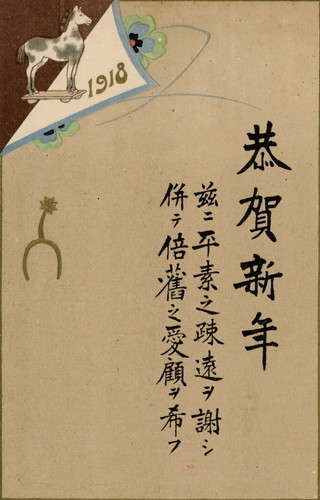 恭賀新年
玆ニ平素之疎遠ヲ謝シ
併テ倍舊之愛顧ヲ希フ
1918